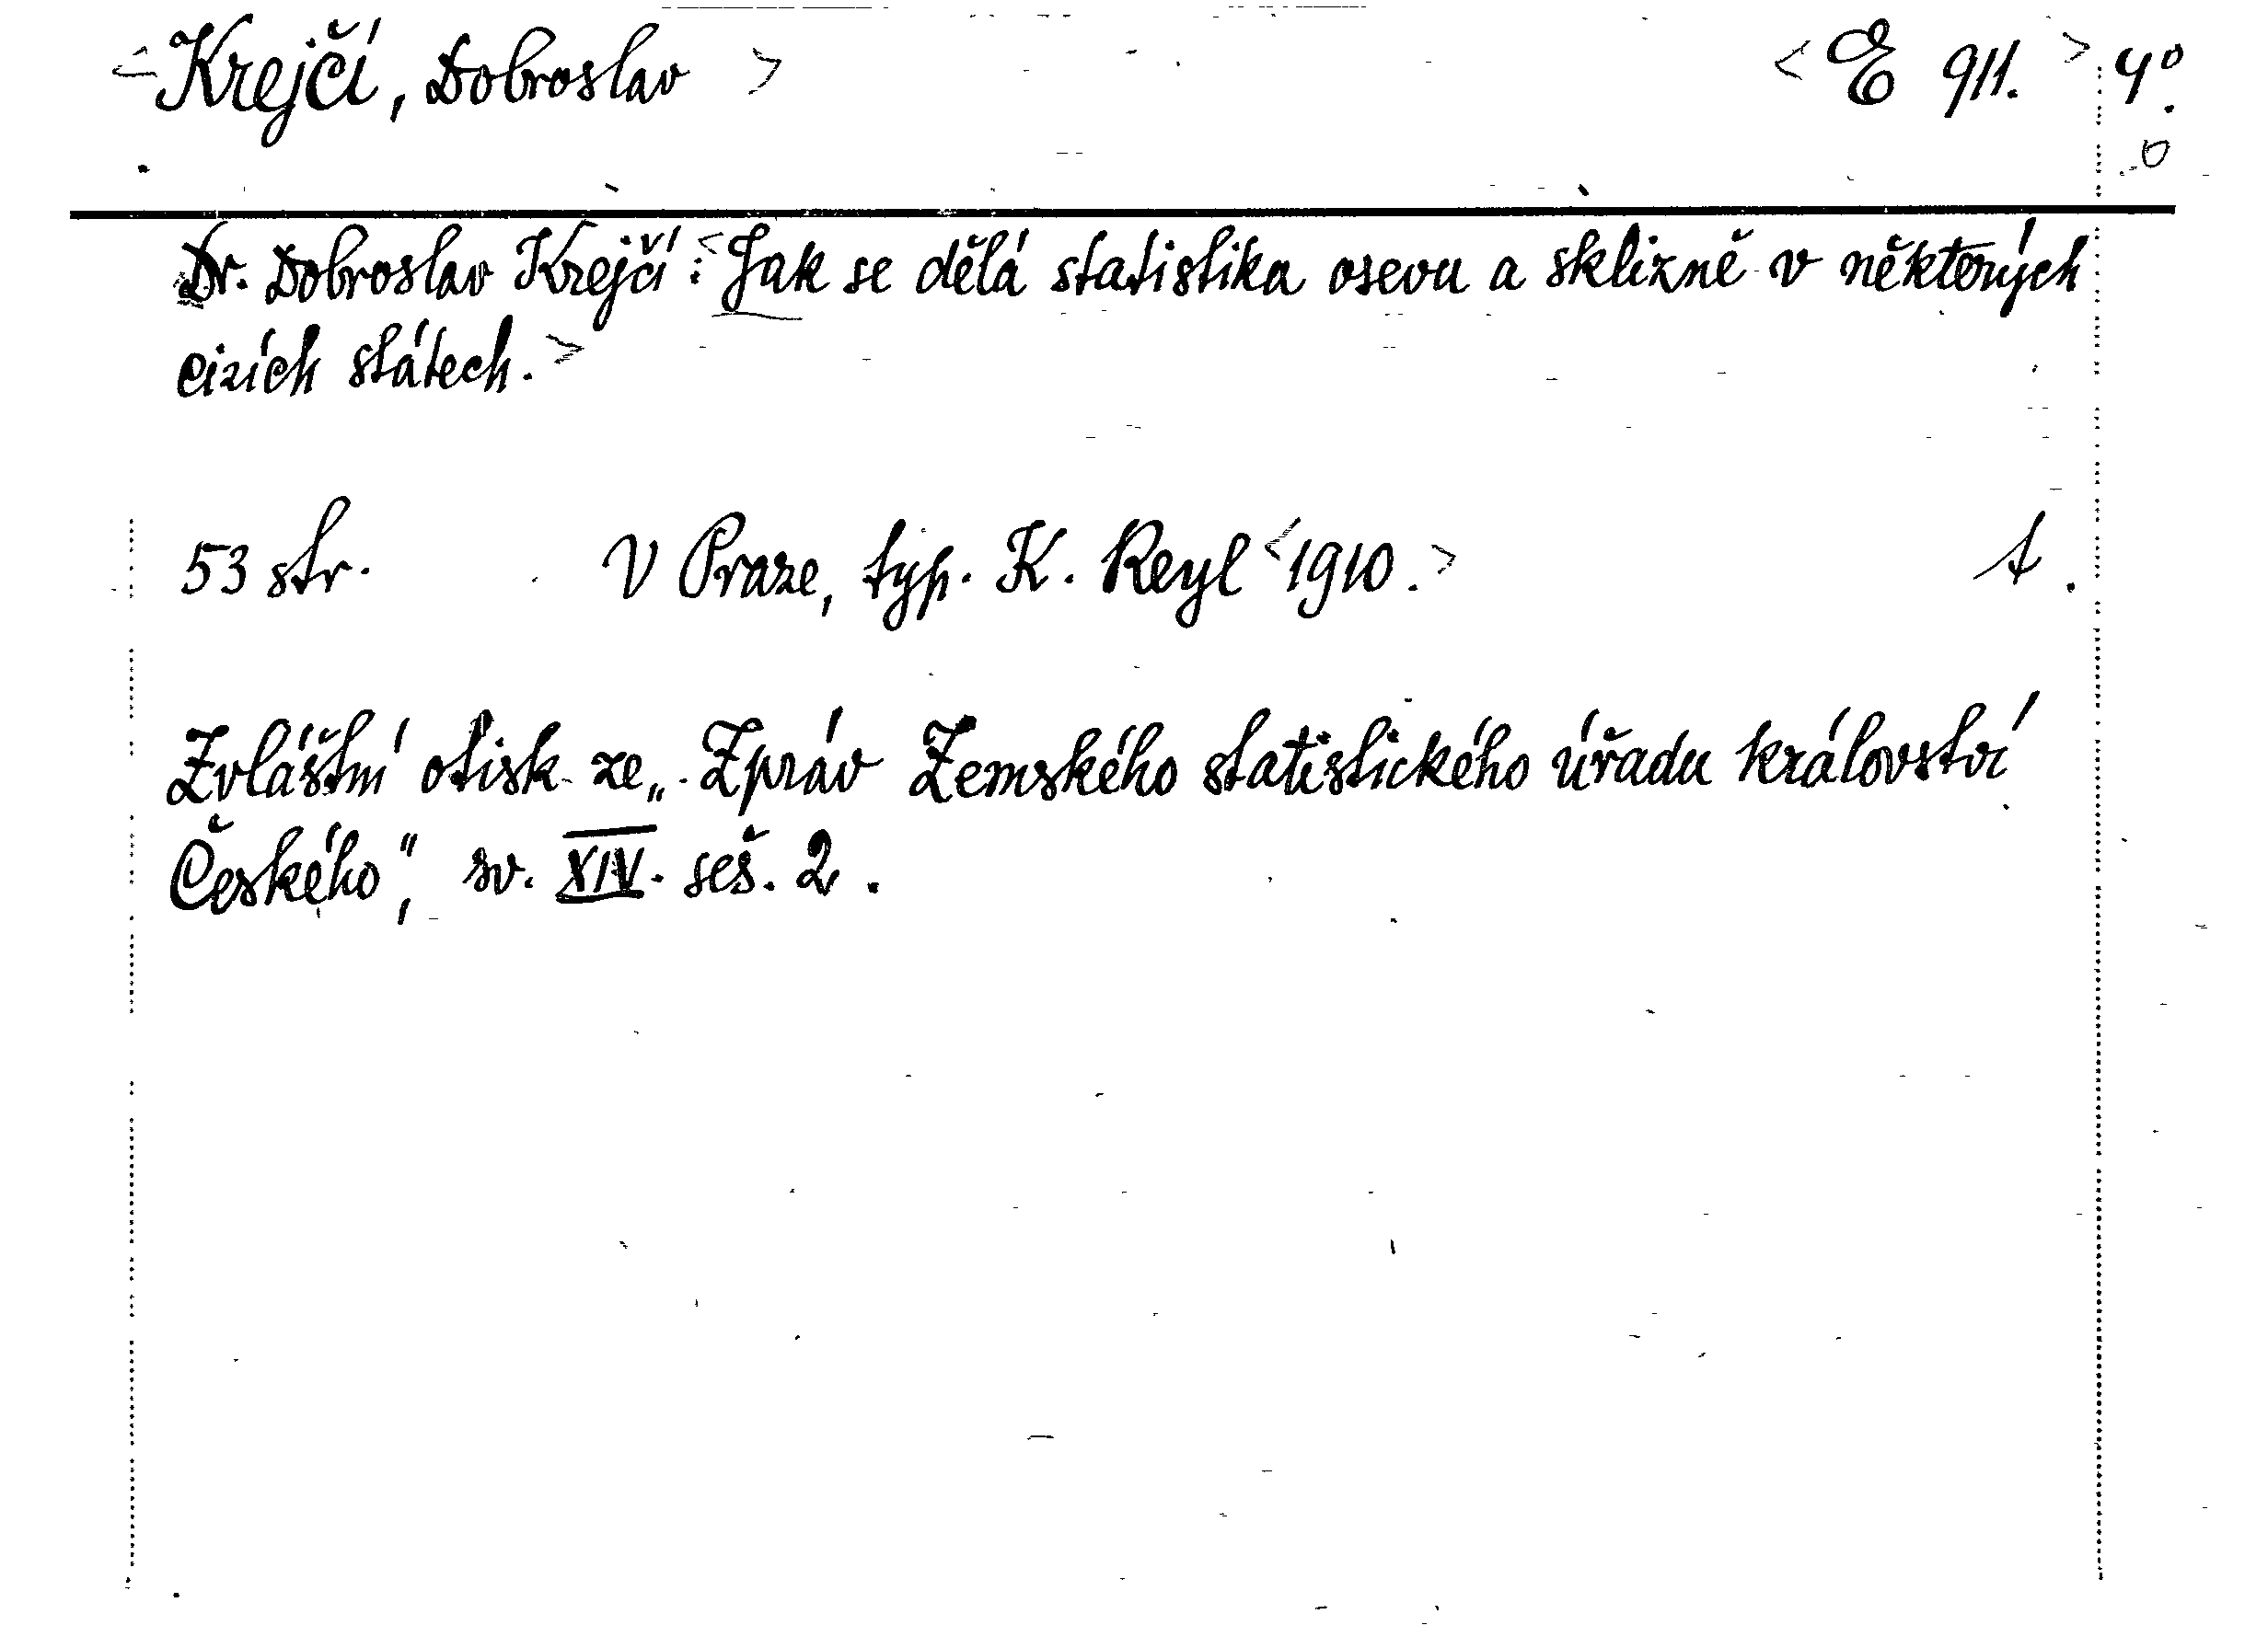 <Krejčí, Dobroslav> <E 911.> 4°.
Dr. Dobroslav Krejčí: <Jak se dělá statistika osevu a sklizně v některých
cizích státech.>
53 str. V Praze, typ. K. Reyl <1910.> 1.
Zvláštní otisk ze „Zpráv Zemského statistického úřadu království
Českého“, sv. XIV. seš. 2.